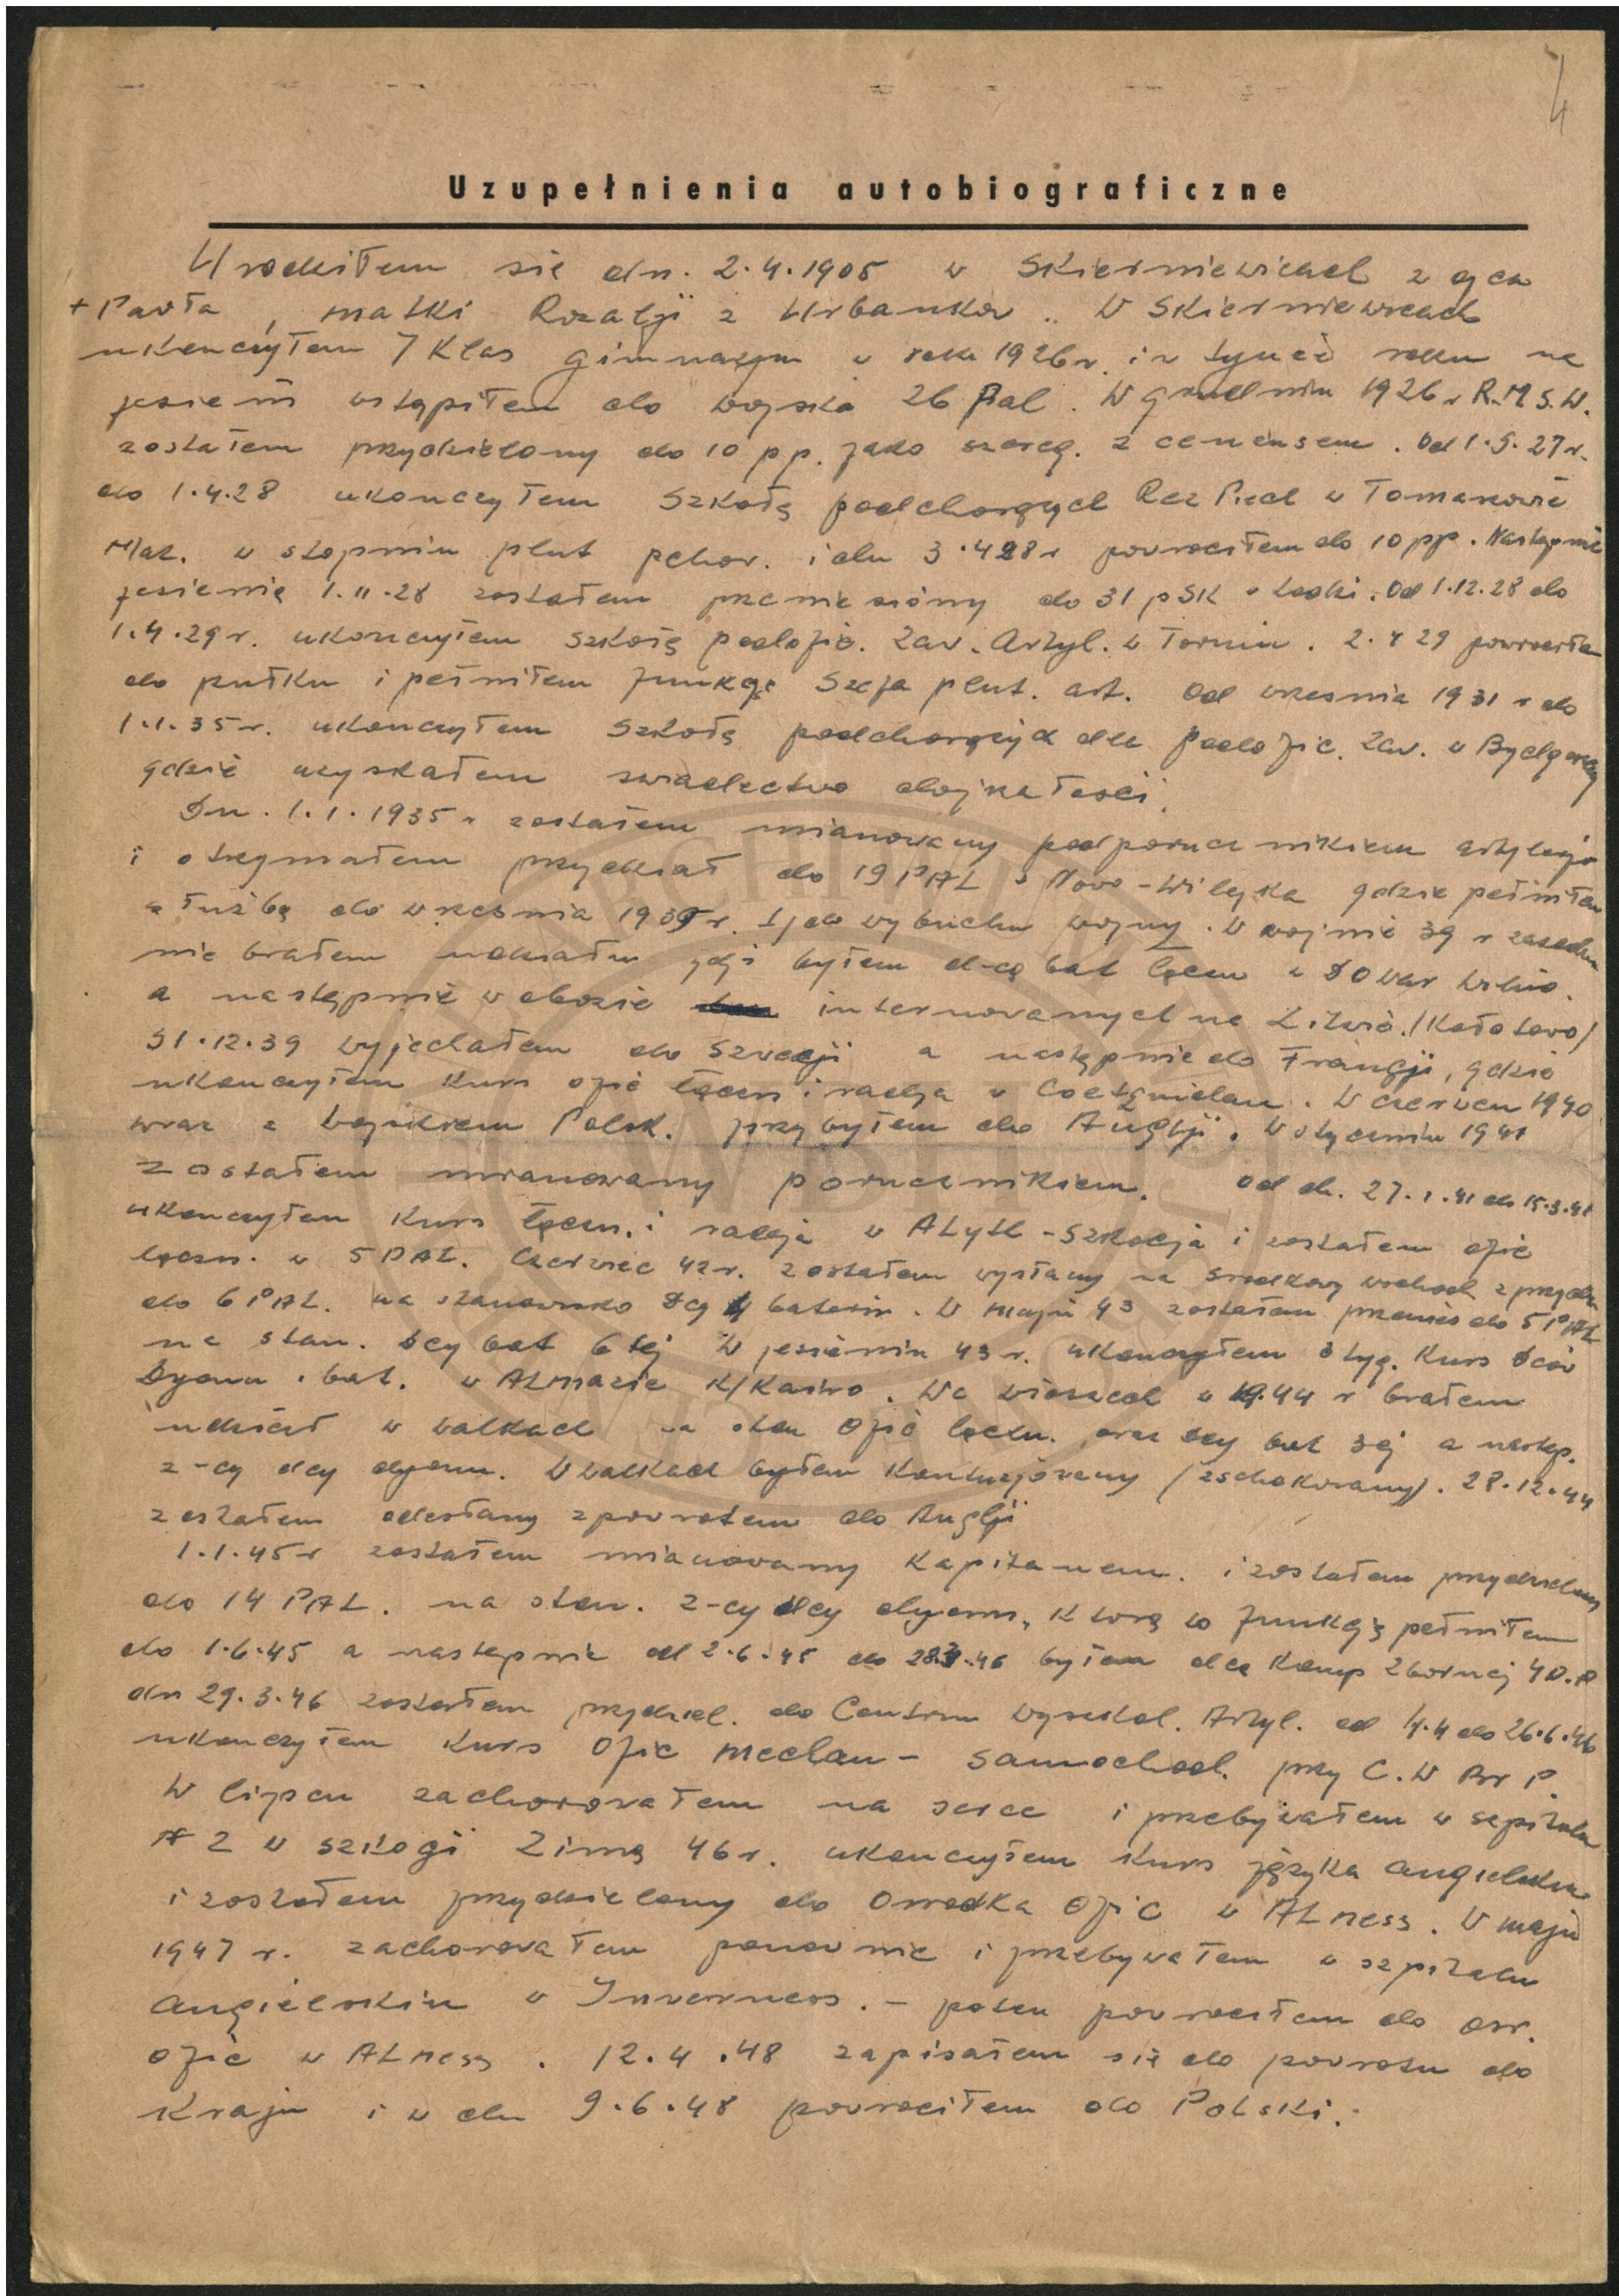 4
Uzupełnienia autobiograficzne
Urodziłem się dn. 2.4.1905 w Skierniewicach z ojca
+ Pawła, matki Rozalji z Urbanków. W Skierniewicach
ukończyłem 7 klas gimnazjum w roku 1926 r. i w tymże roku na
jesieni wstąpiłem do wojska 26 pal. W grudniu 1926 r R.M.S.W.
zostałem przydzielony do 10 pp. jako szereg. z cenensem. Od 1.5.27 r.
do 1.4.28 ukończyłem Szkołę podchorązych Rez Piech w Tomaszowie
Maz. w stopniu plut pchor. i dn 3.4 28 r powrociłem do 10 pp. Następnie
jesienią 1.11.28 zostałem przeniesióny do 31 pSK w Łodzi. Od 1.12.28 do
1.4.29 r. ukończyłem szkołę podofic. Zaw. Artyl. w Toruniu. 2.4 29 powrociłem
do pułku i pełniłem funkcję Szefa plut. art. Od wrzesnia 1931 r do
1.1.35 r. ukończyłem Szkołę podchorązych dla podofic. zaw. w Bydgoszczy
gdzie uzyskałem swiadectwo dojrzałosci.
Dn. 1.1.1935 r zostałem mianowany podporucznikiem artylerji
i otrzymałem przydział do 19 PAL w Nowo-Wilejka gdzie pełniłem
służbę do wrzesnia 1939 r. tj do wybuchu wojny. W wojnie 39 r zasadn.
nie brałem udziału gdyż byłem d-cą bat łączn w DOWar Wilno.
a następnie w obozie internowanych na Litwie. /Kołotowo/
31.12.39 wyjechałem do Szwecji a następnie do Francji, gdzie
ukończyłem kurs ofic łączn i radja w Coetquidan. W czerwcu 1940
wraz z wojskiem Polsk. przybyłem do Anglji. W styczniu 1941
zostałem mianowany porucznikiem. Od dn. 27.1.41 do 15.3.41
ukończyłem kurs łączn. i radja w ALyth - Szkocja i zostałem ofic
łączn. w 5 PAL. Czerwiec 42 r. zostałem wysłany na srodkowy wschod z przydz.
do 6 PAL. na stanowisko Dcy baterii. W maju 43 zostałem przenies do 5 PAL
na stan. Dcy bat 6 tej W jesieniu 43 r. ukończyłem 3 tyg. kurs Dców
Dyonu i bat. w ALmazie k/Kairo. We wioszech w 19.44 r brałem
udział w walkach na stan Ofic łączn. oraz dcy bat 3ej a następ.
z-cy dcy dyonu. W walkach byłem kontuzjowany /zschokowany/. 28.12.44
zostałem odesłany zpowrotem do Anglji
1.1.45 r zostałem mianowany kapitanem. i zostałem przydzielony
do 14 PAL. na stan. z-cy dcy dyonu, którą to funkcję pełniłem
do 1.6.45 a następnie od 2.6.45 do 28.3.46 byłem dcą komp Zbornej 4 D.P
dn 29.3.46 zostałem przydziel. do Centrum Wyszkol. Artyl. od 4.4 do 26.6.46
ukończyłem kurs Ofic mechan - samochod. przy C.W Br P.
W lipcu zachorowałem na serce i przebywałem w szpitalu
# 2 w szkogi Zimą 46 r. ukończyłem kurs języka angielskie
i zostałem przydzielony do Osrodka Ofic w ALness. W maju
1947 r. zachorowałem ponownie i przebywałem w szpitalu
angielskim w Inverness. - potem powrociłem do osr.
ofic w ALness. 12.4.48 zapisałem się do powrotu do
kraju i w dn 9.6.48 powrociłem do Polski.